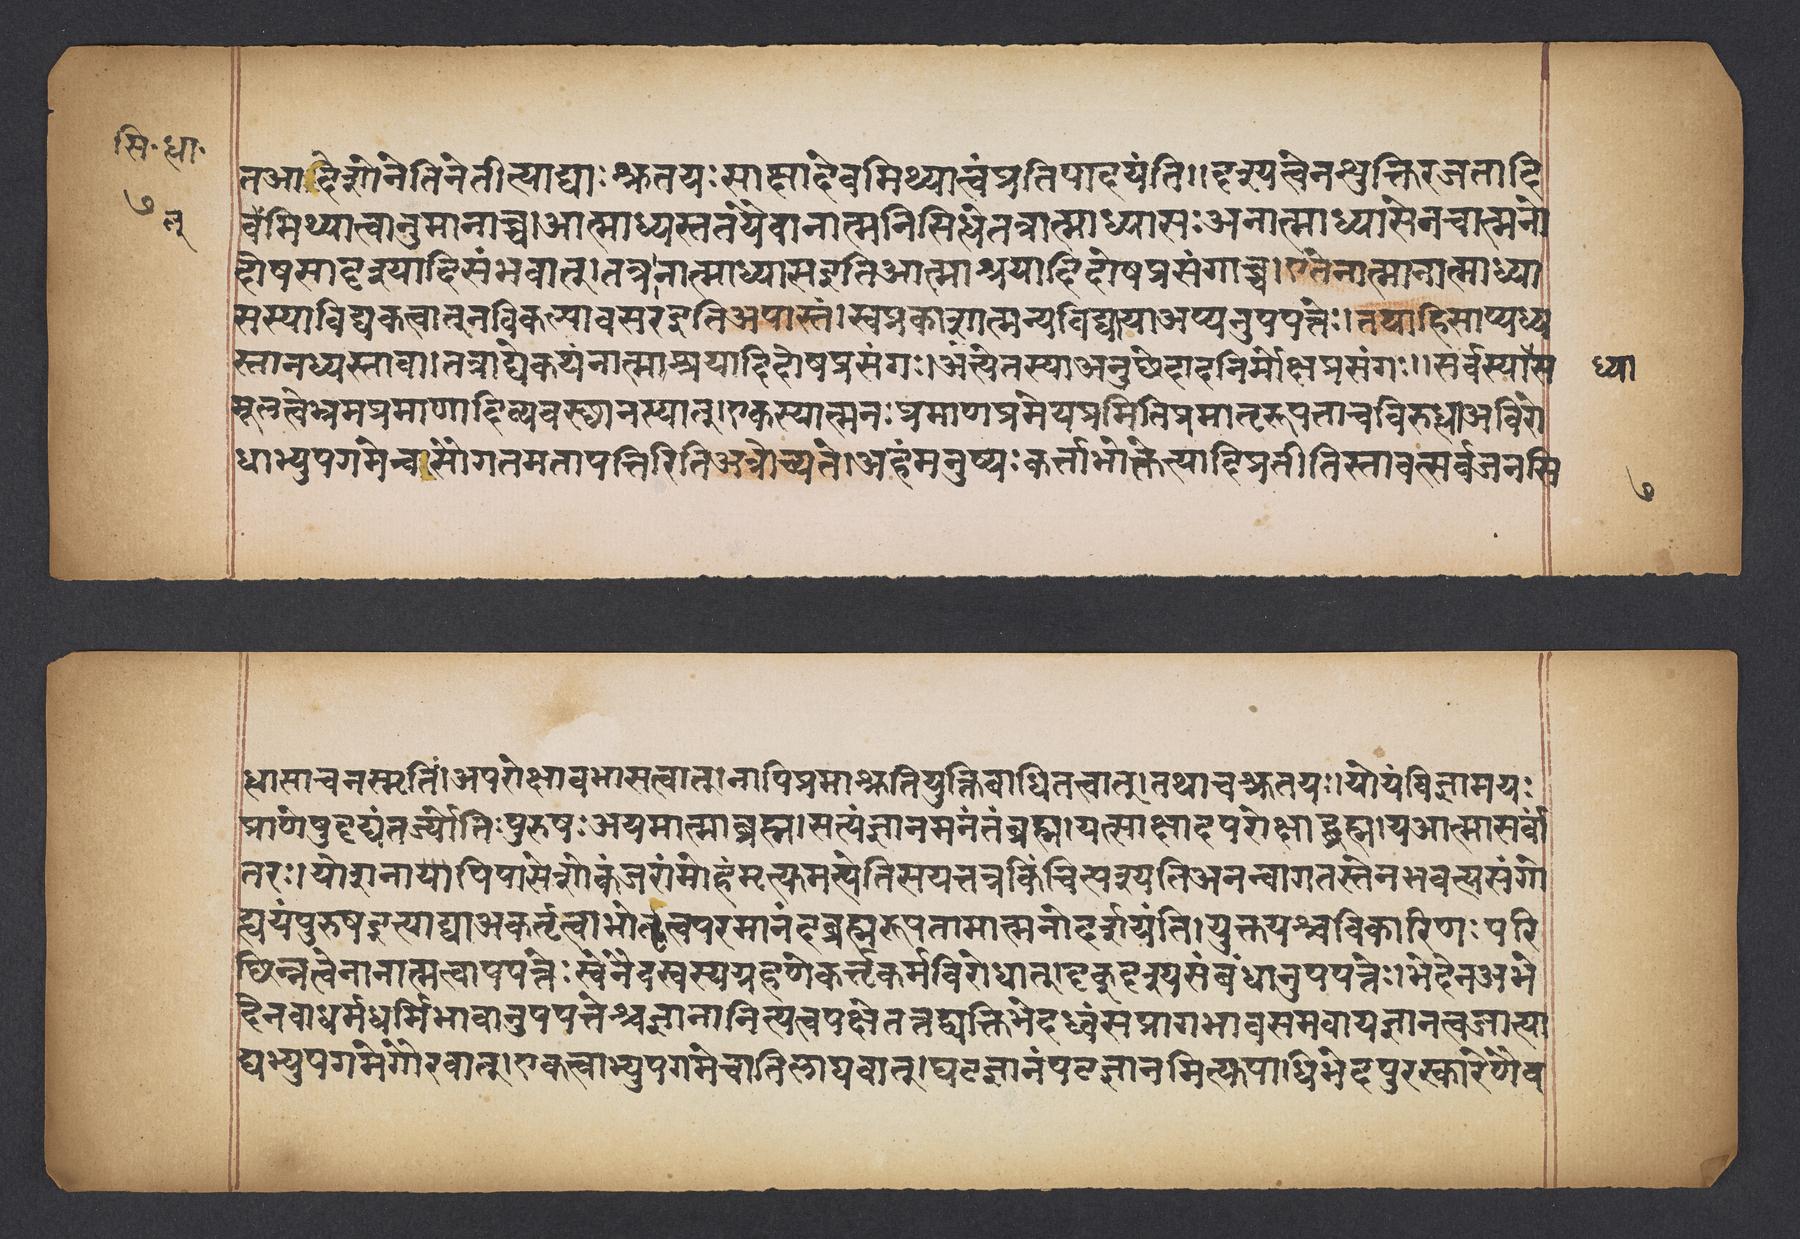 सि॰धा॰
७
तआदेशोनेतिनेतीत्याद्याःश्रुतयःसाक्षादेवमिथ्यात्वंप्रतिपादयंति।।दृश्यत्वेनशुक्तिरजतादि
नु
वन्मिथ्यात्वानुमानाच्च।आत्माध्यस्ततयैवानात्मनिसिधेतत्रात्माध्यासःअनात्माध्यासेनचात्मनो
दोषसादृश्यादिसंभवात्।तत्रनात्माध्यासइतिआत्माश्रयादिदोषप्रसंगाच्च।एतेनात्मानात्माध्या
सस्याविद्यकत्वात्नविकल्पावसरइतिअपास्तं।स्वप्रकाशात्मन्यविद्यायाअप्यनुपपत्तेः।तथाहिसाप्यध्य
स्तानध्यस्तावा।तत्राद्येकथंनात्माश्रयादिदोषप्रसंगः।अंत्येतस्याअनुछेदादनिर्मोक्षप्रसंगः।।सर्वस्यास
ध्या
मूलत्वेभ्रमप्रमाणादिव्यवस्छानस्यात्।एकस्यात्मनःप्रमाणप्रमेयप्रमितिप्रमातृरूपताचविरुधाअविरो
धाभ्युपगमेन्वासौगतमतापत्तिरितिअत्रोच्यते।अहंमनुष्यःकर्त्ताभोक्तेत्यादिप्रतीतिस्तावत्सर्वजनसि
७
धासाचनस्मृतिः।अपरोक्षावभासत्वात्।नापिप्रमाश्रुतियुक्तिबाधितत्वात्।तथाचश्रुतयः।योयंविज्ञामयः
प्राणेषुहृद्यंतर्ज्योतिःपुरुषःअयमात्माब्रह्म।सत्यंज्ञानमनंतंब्रह्म।यत्साक्षादपरोक्षाद्ब्रह्म।यआत्मासर्वां
तरः।योशनायापिपासेशोकंजरांमोहंमृत्युमत्येतिसयत्तत्रकिंचित्पश्यतिअनन्वागतस्तेनभवत्यसंगो
ह्ययंपुरुषइत्याद्याअकर्तृत्वाभोक्तृत्वपरमानंदब्रह्मरूपतामात्मनोदर्शयंति।युक्तयश्चविकारिणःपरि
छिन्नत्वेनानात्मत्वापपत्तेःस्वेनैवस्वस्यग्रहणेकर्त्तृकर्मविरोधात्।दृक्दृश्यसंबंधानुपपत्तेः।भेदेनअभे
देनवाधर्मधर्मिभावानुपपत्तेश्चज्ञानानित्यत्वपक्षेतत्तद्व्यक्तिभेदध्वंसप्रागभावसमवायज्ञानत्वजात्या
द्यभ्युपगमेगौरवात्।एकत्वाभ्युपगमेचातिलाघवात्।घटज्ञानंपटज्ञानमित्युपाधिभेदपुरस्कारेणैव